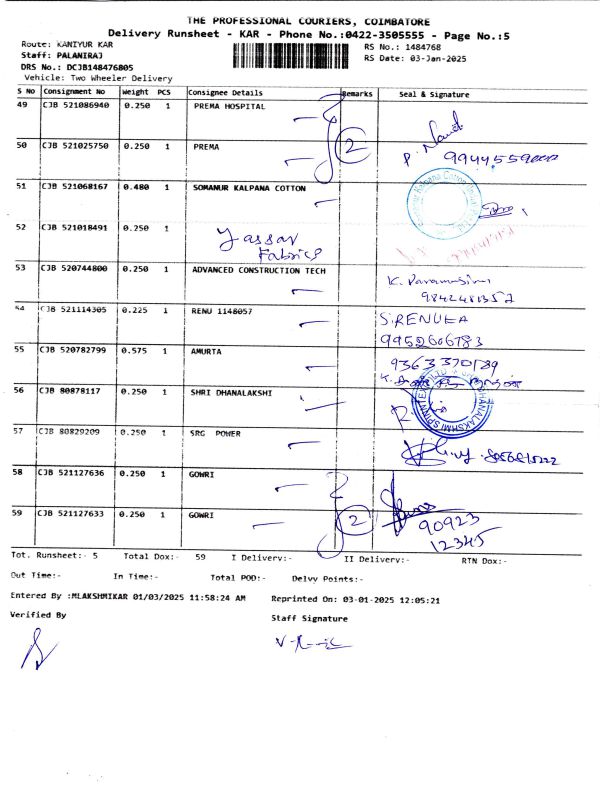 THE PROFESSIONAL COURIERS, COIMBATORE
Delivery Runsheet - KAR - Phone No.:0422-3505555 - Page No.:5
Route: KANIYUR KAR
RS No.: 1484768
Staff: PALANIRAJ
RS Date: 03-Jan-2025
DRS No.: DCJB148476805
Vehicle: Two Wheeler Delivery
S No Consignment No Weight PCS Consignee Details Remarks Seal & Signature
49 CJB 521086940 0.250 1 PREMA HOSPITAL
50 CJB 521025750 0.250 1 PREMA 2
51 CJB 521068167 0.480 1 SOMANUR KALPANA COTTON
52 CJB 521018491 0.250 1 Jassav Fabrics
53 CJB 520744800 0.250 1 ADVANCED CONSTRUCTION TECH
54 CJB 521114305 0.225 1 RENU 1148057 S.RENUKA
9952606783
55 CJB 520782799 0.575 1 AMURTA
56 CJB 80878117 0.250 1 SHRI DHANALAKSHI
57 CJB 80829209 0.250 1 SRG POWER
58 CJB 521127636 0.250 1 GOWRI
59 CJB 521127633 0.250 1 GOWRI 2 90923
12345
Tot. Runsheet:- 5 Total Dox:- 59 I Delivery:- II Delivery:- RTN Dox:-
Out Time:- In Time:- Total POD:- Delvy Points:-
Entered By :MLAKSHMIKAR 01/03/2025 11:58:24 AM Reprinted On: 03-01-2025 12:05:21
Verified By
Staff Signature